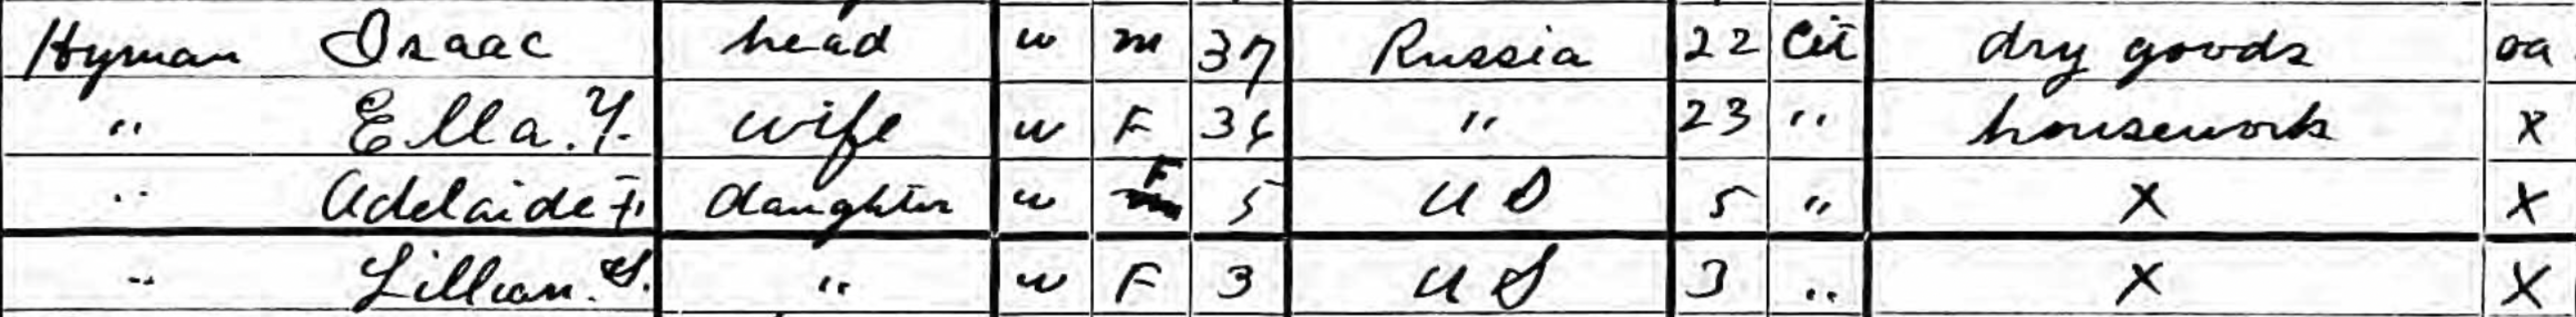 Hyman Isaac head w m 37 Russia 22 Cit dry goods oa
" Ella. Y. wife w F 36 " 23 " housework x
" Adelaide F. daughter w F 5 U S 5 " X X
" Lillian. S. " w F 3 U S 3 " X X